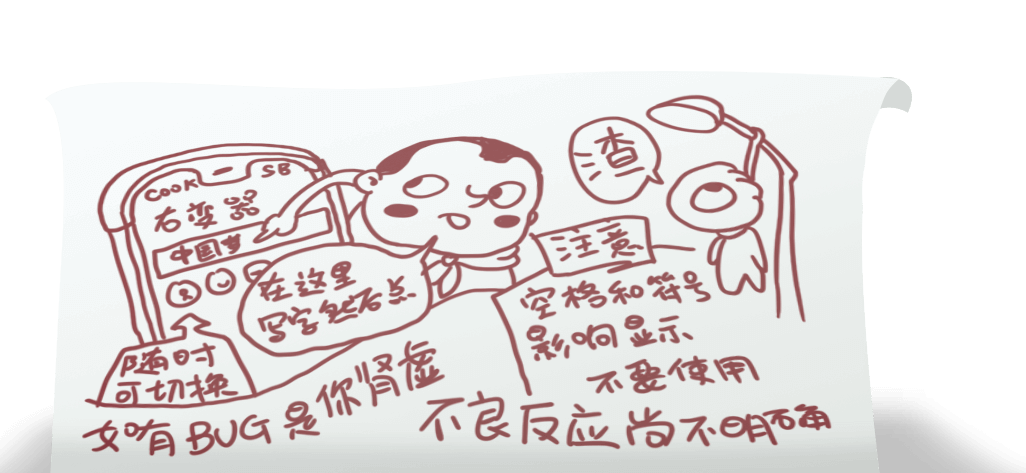 COOK SB
右变器
中国梦
在这里
写字然右点
随时
可切换
渣
注意
空格和符号
影响显示
不要使用
如有BUG是你肾虚
不良反应尚不明确